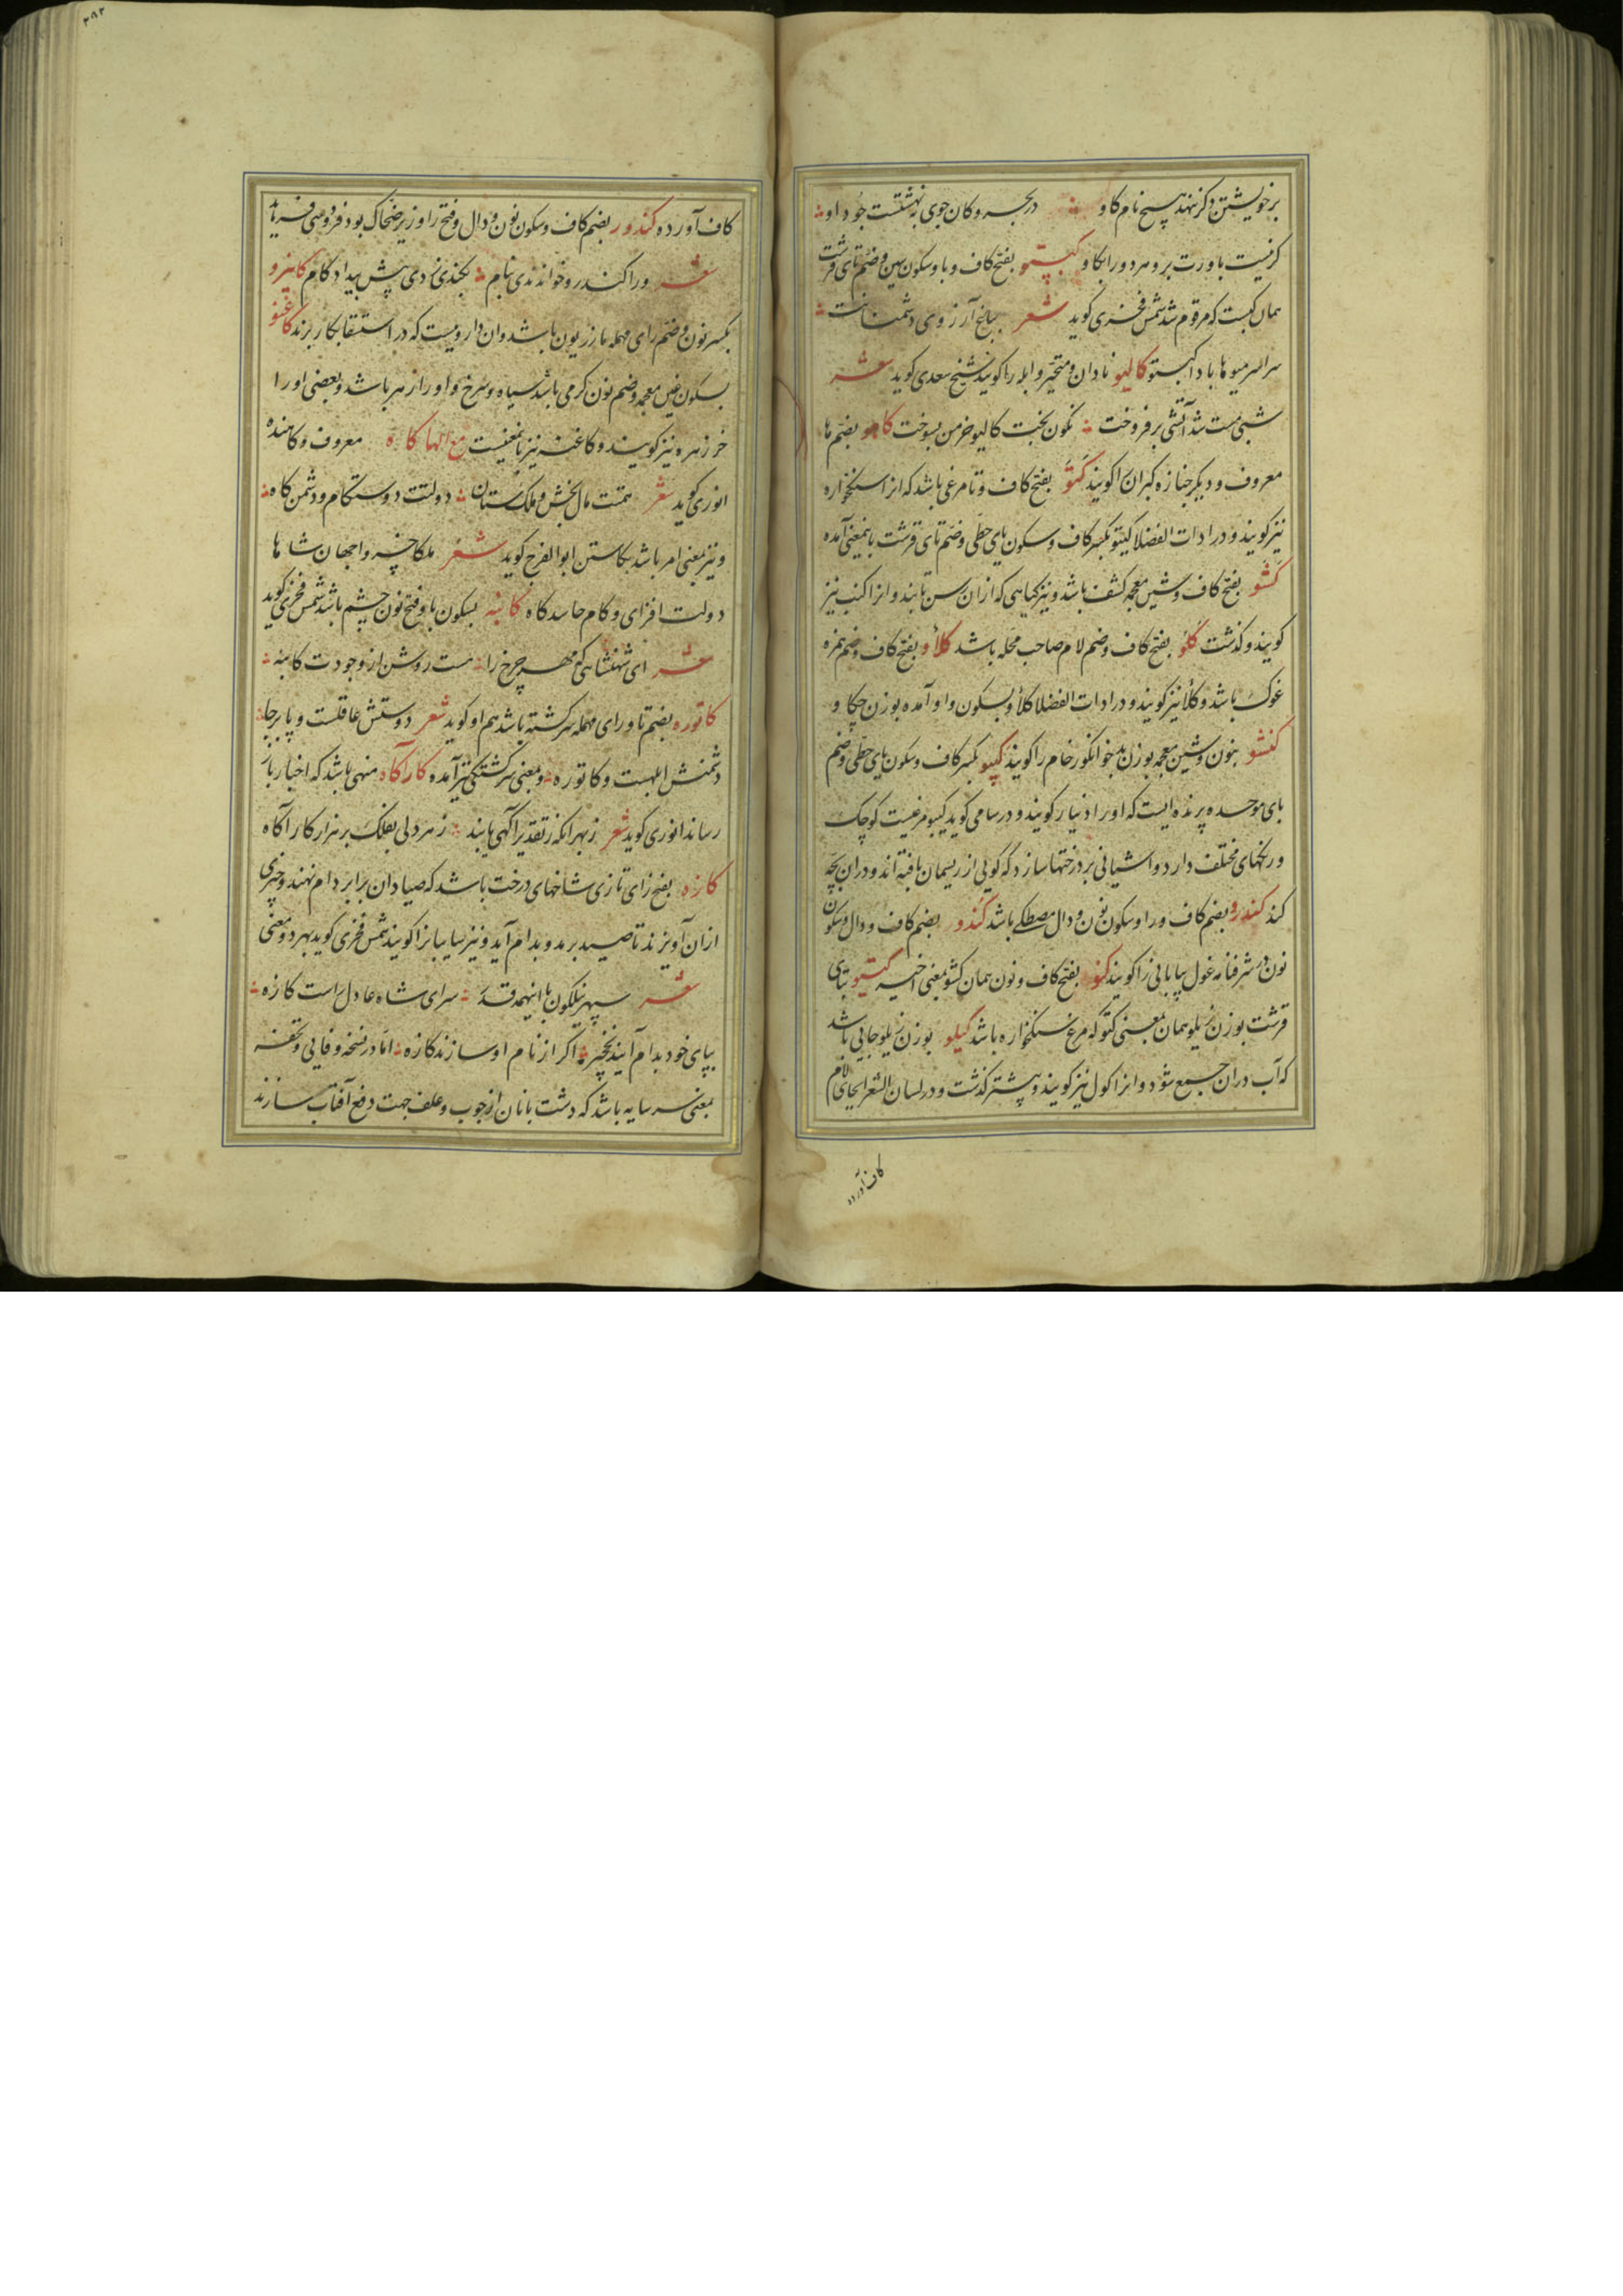 برخویشتن دکر ننهد هیچ نام کاو ؞ در بحر و کان جوی بهشتست جود او ؞
کرنیست باورت برو مردو را بکاو کبستو بفتح کاف و با و سکون سین و ضم تای قرشت
همان کبست که مرقوم شد شمس فخری کوید شعر بباغ آرزوی دشمنانت ؞
سراسر میوها بادا کبستو کالیو نادان و متحیر و ابله را کویند شیخ سعدی کوید شعر
شبی مست شد آتشی برفروخت ؞ نکون بخت کالیو خرمن بسوخت کاهو بضم ها
معروف و دیکر جنازه کبران را کویند کتو بفتح کاف و تا مرغی باشد که انرا سنکخواره
نیز کویند و در ادات الفضلا کیتو بکسر کاف و سکون یای حطی و ضم تای قرشت باینمعنی آمده
کشو بفتح کاف و شین معجمه کشف باشد و نیز کیاهی که ازان رسن تابند و انرا کنب نیز
کویند و کذشت کلو بفتح کاف و ضم لام صاحب محله باشد کلاو بفتح کاف و ضم همزه
غوک باشد و کلا نیز کویند و در ادات الفضلا کلاو بسکون واو آمده بوزن چکاو
کنشو بنون و شین معجمه بوزن بدخو انکور خام را کویند کیبو بکسر کاف و سکون یای حطی و ضم
بای موحده پرنده ایست که اورا دنیار کویند و در سامی کوید کیبو مرغیست کوچک
و رنکهای مختلف دارد و اشیانی بر درختها سازد که کویی از ریسمان بافته اند و دران بچه
کند کندرو بضم کاف و را و سکون نون و دال مصطکی باشد کندو بضم کاف و دال و سکون
نون در شرفنامه غول بیابانی را کویند کنو بفتح کاف و نون همان کشو بمعنی اخیر کیتو بتای
قرشت بوزن زیلو همان بمعنی کتو که مرغ سنکخواره باشد کیلو بوزن زیلو جایی باشد
که آب دران جمع شود و انرا کول نیز کویند و پیشتر کذشت و در لسان الشعرا بجای لام
کاف آورده
۳۸۲
کاف آورده کندرو بضم کاف و سکون نون و دال و فتح را وزیر ضحاک بود فردوسی فرماید
شعر ورا کندرو خواندندی بنام ؞ بکندی زدی پیش بیداد کام کانیرو
بکسر نون و ضم رای مهمله مازریون باشد و ان داروییست که در استسقا بکار برند کاغنو
بسکون غین معجمه و ضم نون کرمی باشد سیاه و سرخ و اورا زهر باشد و بعضی اورا
خرزهره نیز کویند و کاغنه نیز باینمعنیست مع الها کاه معروف و کاهنده
انوری کوید شعر همتت مال بخش و ملک ستان ؞ دولتت دوستکام و دشمن کاه ؞
و نیز بمعنی امر باشد بکاستن ابوالفرج کوید شعر ملکا خسروا جهان شاها
دولت افزای و کام حاسد کاه کابنه بسکون با و فتح نون چشم باشد شمس فخری کوید
شعر ای شهنشاهی که مهر چرخ را ؞ هست روشن از وجودت کابنه ؞
کاتوره بضم تا و رای مهمله سرکشته باشد هم او کوید شعر دوستش عاقلست و پابرجا ؞
دشمنش ابلهست و کاتوره ؞ و بمعنی سرکشتکی نیز آمده کارآکاه منهی باشد که اخبار باز
رساند انوری کوید شعر زبهر انکه ز تقدیر آکهی یابند ؞ ز هر دلی بفلک بر هزار کارآکاه
کازه بفتح زای تازی شاخهای درخت باشد که صیادان برابر دام نهند و چیزی
ازان آویزند تا صید برمد و بدام آید و نیز سایبانرا کویند شمس فخری کوید بهر دو معنی
شعر سپهر نیلکون با اینهمه قدر ؞ سرای شاه عادل راست کازه ؞
بپای خود بدام آید نخچیر ؞ اکر از نام او سازند کازه ؞ اما در نسخه وفایی و تحفه
بمعنی سرسایه باشد که دشت بانان از چوب و علف جهت دفع آفتاب سازند